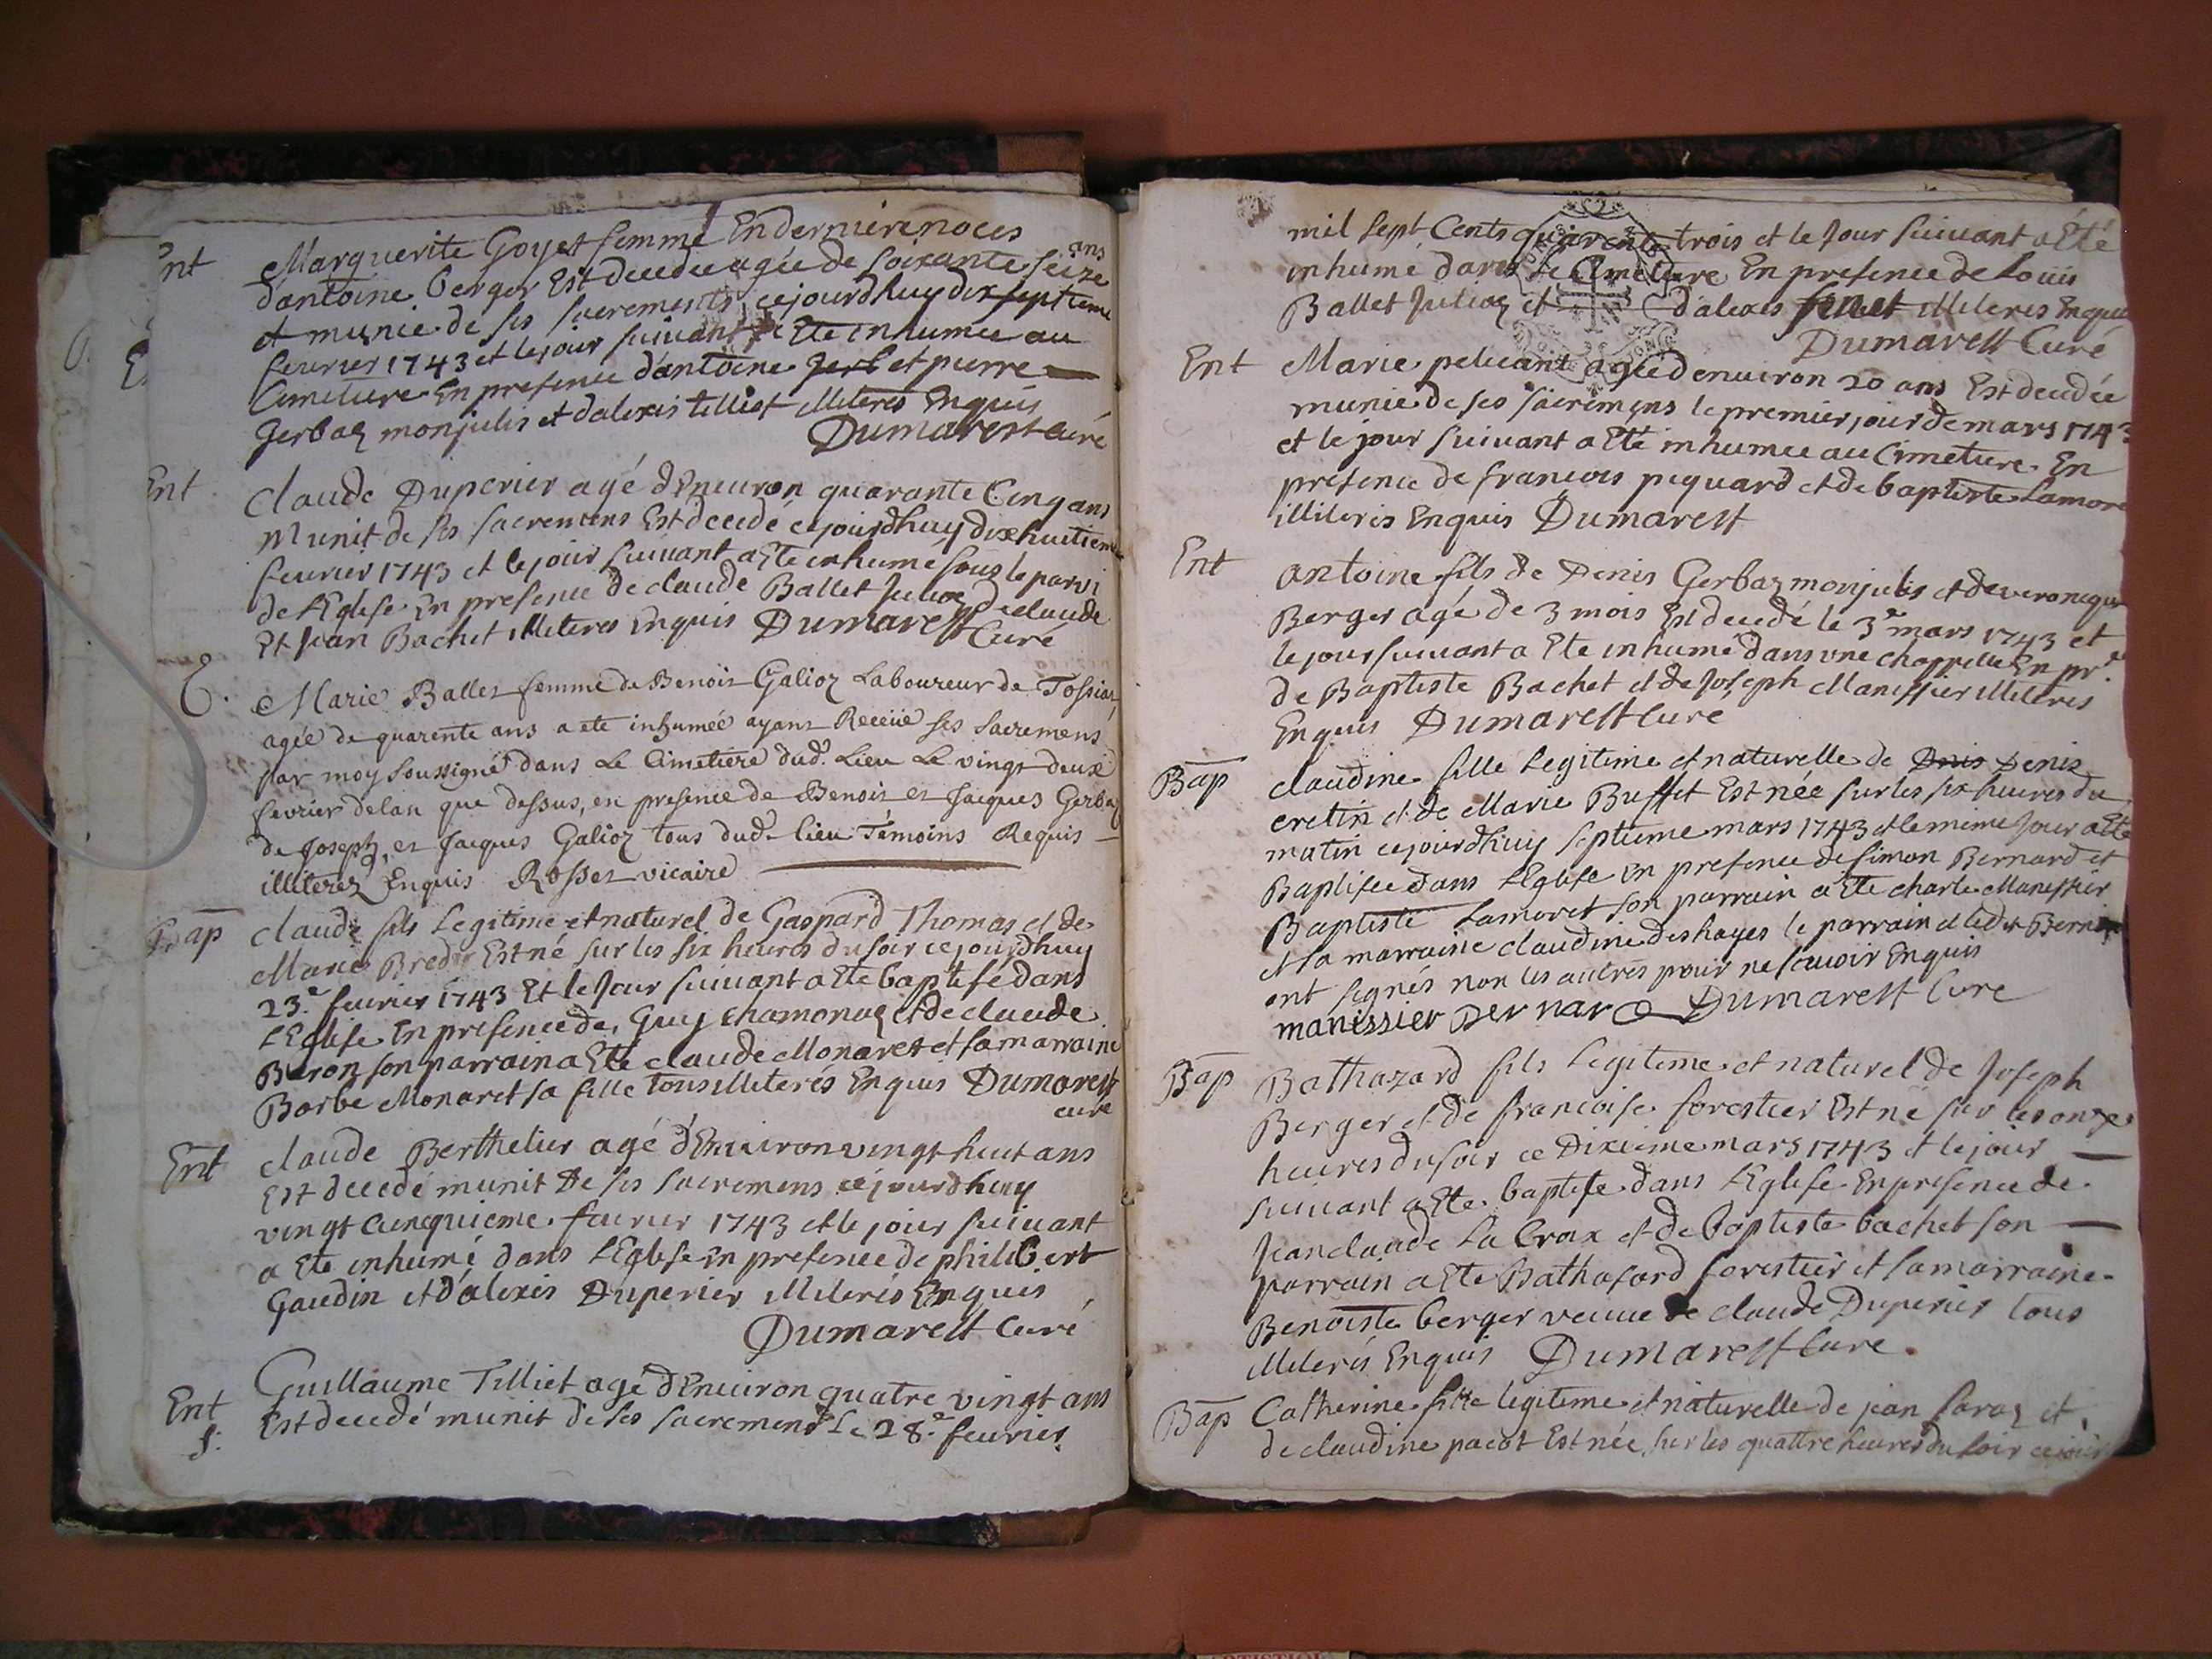 Ent Marguerite Goyet femme En derniere noces
d'antoine berger Est decedee agée de soixante seize ans
et munie de ses sacrements cejourdhuy dix septieme
feurier 1743 et le jour suiuant a Ete inhumée au
Cimetiere En presence d'antoine Gerb et pierre
Gerbaz monjulis et d'alexis tilliet illiterés Enquis
Dumarest curé
Ent Claude Duperier agé d'Enuiron quarante Cinq ans
Munit de ses sacremens Est decedé cejourdhuy dixhuitieme
feurier 1743 et le jour suiuant a Ete inhumé sous le parvi
de l'Eglise En presence de claude Ballet Julioz de claude
Et Jean Bachet illiteres Enquis Dumarest
Curé
E. Marie Ballet femme de Benoit Galioz Laboureur de Tossiat
agée de quarente ans a ete inhumée ayant Receüe ses sacremens
par moy soussigné dans Le Cimetiere dud. Lieu Le vingt deux
fevrier delan que dessus, en presence de Benoit et Jacques Gerbaz
de Joseph, et Jacques Galioz tous dud. lieu Témoins Requis
illiterez Enquis Rosset vicaire
Bap claude fils Legitime et naturel de Gaspard Thomas et de
Marie Bredi Est né sur les six heures du soir cejourdhuy
23.e feurier 1743 Et le Jour suiuant a Ete baptisé dans
l'Eglise En presence de Guy chamonaz et de claude
Baron son parrain a Eté claude Monaret et sa marraine
Barbe Monaret sa fille tous illiterés Enquis Dumarest
curé
Ent claude Berthelier agé d'Enuiron vingt huit ans
Est decedé munit De ses sacremens cejourdhuy
vingt cinquieme feurier 1743 et le jour suiuant
a Ete inhumé dans l'Eglise En presence de philibert
Gaudin et d'alexis Duperier illiterés Enquis
Dumarest Curé
Ent Guillaume Tilliet agé d'Enuiron quatre vingt ans
S: Est decedé munit de ses sacremens Le 28.e feurier
mil sept Cents quarante trois et le Jour suiuant a Eté
inhumé dans le Cimetiere En presence de Loüis
Ballet Julioz et d'alexis illiteres Enquis
Dumarest Curé
Ent Marie agée d'enuiron 20 ans Est decedée
munie de ses sacremens le premier jour de mars 1743
et le jour suiuant a Eté inhumee au Cimetiere En
presence de francois piquard et de baptiste Lamore
illiteris Enquis Dumarest
Ent antoine fils de Denis Gerbaz monjulis et de veronique
Berger agé de 3 mois Est decedé le 3e mars 1743 et
le jour suiuant a Ete inhumé dans une chappelle En pr.e
de Baptiste Bachet et de Joseph Manissier illiteres
Enquis Dumarest curé
Bap claudine fille Legitime et naturelle de Denis
cretin et de Marie Buffet Est née sur les six heures du
matin cejourdhuy septieme mars 1743 et le meme Jour a Ete
Baptisee dans l'Eglise En presence de simon Bernard et
Baptiste Lamoret son parrain a Ete charle Manissier
et sa marraine claudine deshayes le parrain et led.t Bernar
ont signés non les autres pour ne scauoir Enquis
manissier Bernard Dumarest Cure
Bap Bathazard fils Legitime et naturel de Joseph
Berger et de francoise forestier Est né sur les onze
heures du soir ce Dixieme mars 1743 et le jour
suiuant a Ete baptisé dans l'Eglise En presence de
Jean claude La Croix et de baptiste bachet son
parrain a Ete Bathasard forestier et sa marraine
Benoiste berger veuue de claude Duperier tous
illiterés Enquis Dumarest Cure.
Bap Catherine fille legitime et naturelle de jean et
de claudine pacot Est née sur les quattre heures du soir cejour